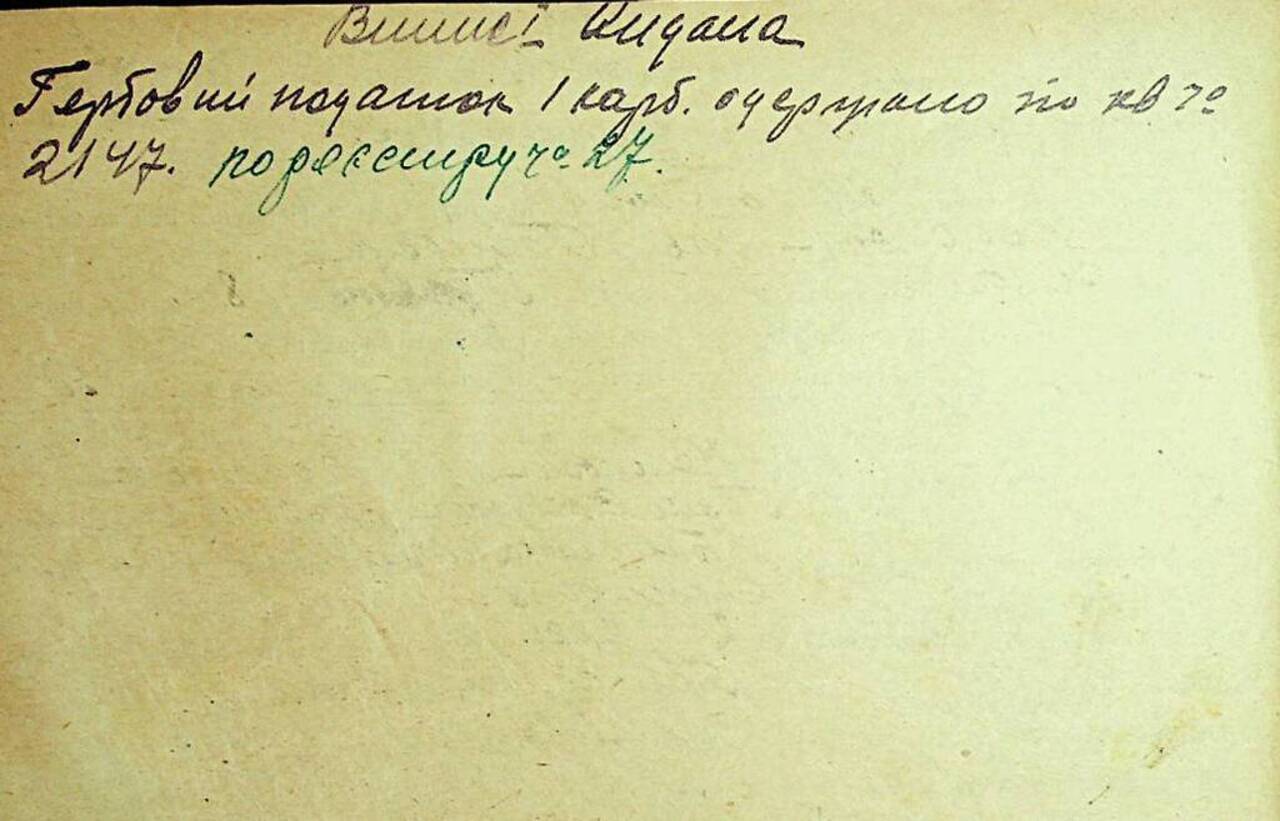 Виписі видана
Гербовий податок 1 карб. одержано по кв чо
2147. по реєстру чо 27.